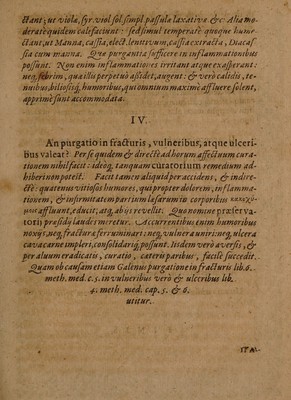 ctant; ut viola, syr. viol. sol. simpl. passula laxativa &c. Alia mo-
deratè quidem calefaciunt: sed simul temperatè quoque hume-
ctant, ut Manna, cassia, elect. lenitivum, cassia extracta, Diacas-
sia cum manna. Quæ purgantia sufficere in inflammationibus
possunt. Non enim inflammationes irritant atque exasperant:
neq; febrim, quæ illis perpetuò assidet, augent: & verò calidis, te-
nuibus, biliosisq́; humoribus, qui omnium maximè affluere solent,
apprimè sunt accommodata.
IV.
An purgatio in fracturis, vulneribus, atque ulceri-
bus valeat? Per se quidem & directè ad horum affectuum cura-
tionem nihil facit: ideoq́; tanquam curatorium remedium ad-
hiberi non potest. Facit tamen aliquid per accidens, & indire-
ctè: quatenus vitiosos humores, qui propter dolorem, inflamma-
tionem, & infirmitatem partium læsarum in corporibus κακοχύ-
μοις affluunt, educit, atq; ab ijs revellit. Quo nomine præserva-
torij præsidij laudem meretur. Accurrentibus enim humoribus
noxijs, neq; fracturæ ferruminari: neq; vulnera uniri: neq; ulcera
cava carne impleri, consolidariq́; possunt. Iisdem verò aversis, &
per alvum eradicatis, curatio, cæteris paribus, facilè succedit.
Quam ob causam etiam Galenus purgatione in fracturis lib. 6.
meth. med. c. 5. in vulneribus verò & ulceribus lib.
4. meth. med. cap. 5. & 6.
utitur.
ITA